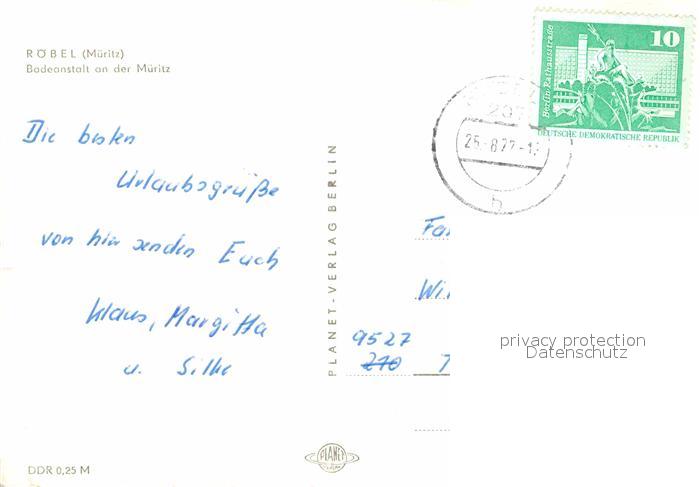 RÖBEL (Müritz)
Badeanstalt an der Müritz
Die besten
Urlaubsgrüße
von hier senden Euch
Klaus, Margitta
u. Silke
PLANET-VERLAG BERLIN
10
Berlin, Rathausstraße
DEUTSCHE DEMOKRATISCHE REPUBLIK
207
25.-8.77-1
b
Fa
Wi
9527
210
privacy protection
Datenschutz
PLANET
DDR 0,25 M